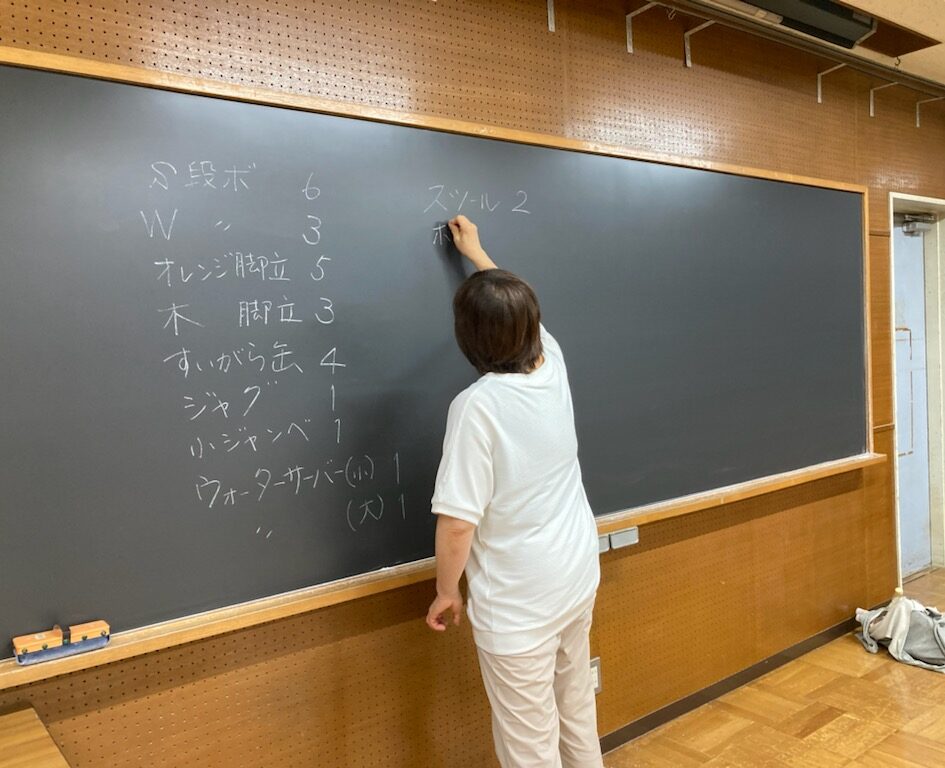 S段ボ 6
W 〃 3
オレンジ脚立 5
木 脚立 3
すいがら缶 4
ジャグ 1
小ジャンベ 1
ウォーターサーバー(小) 1
〃 (大) 1
スツール 2
ホ